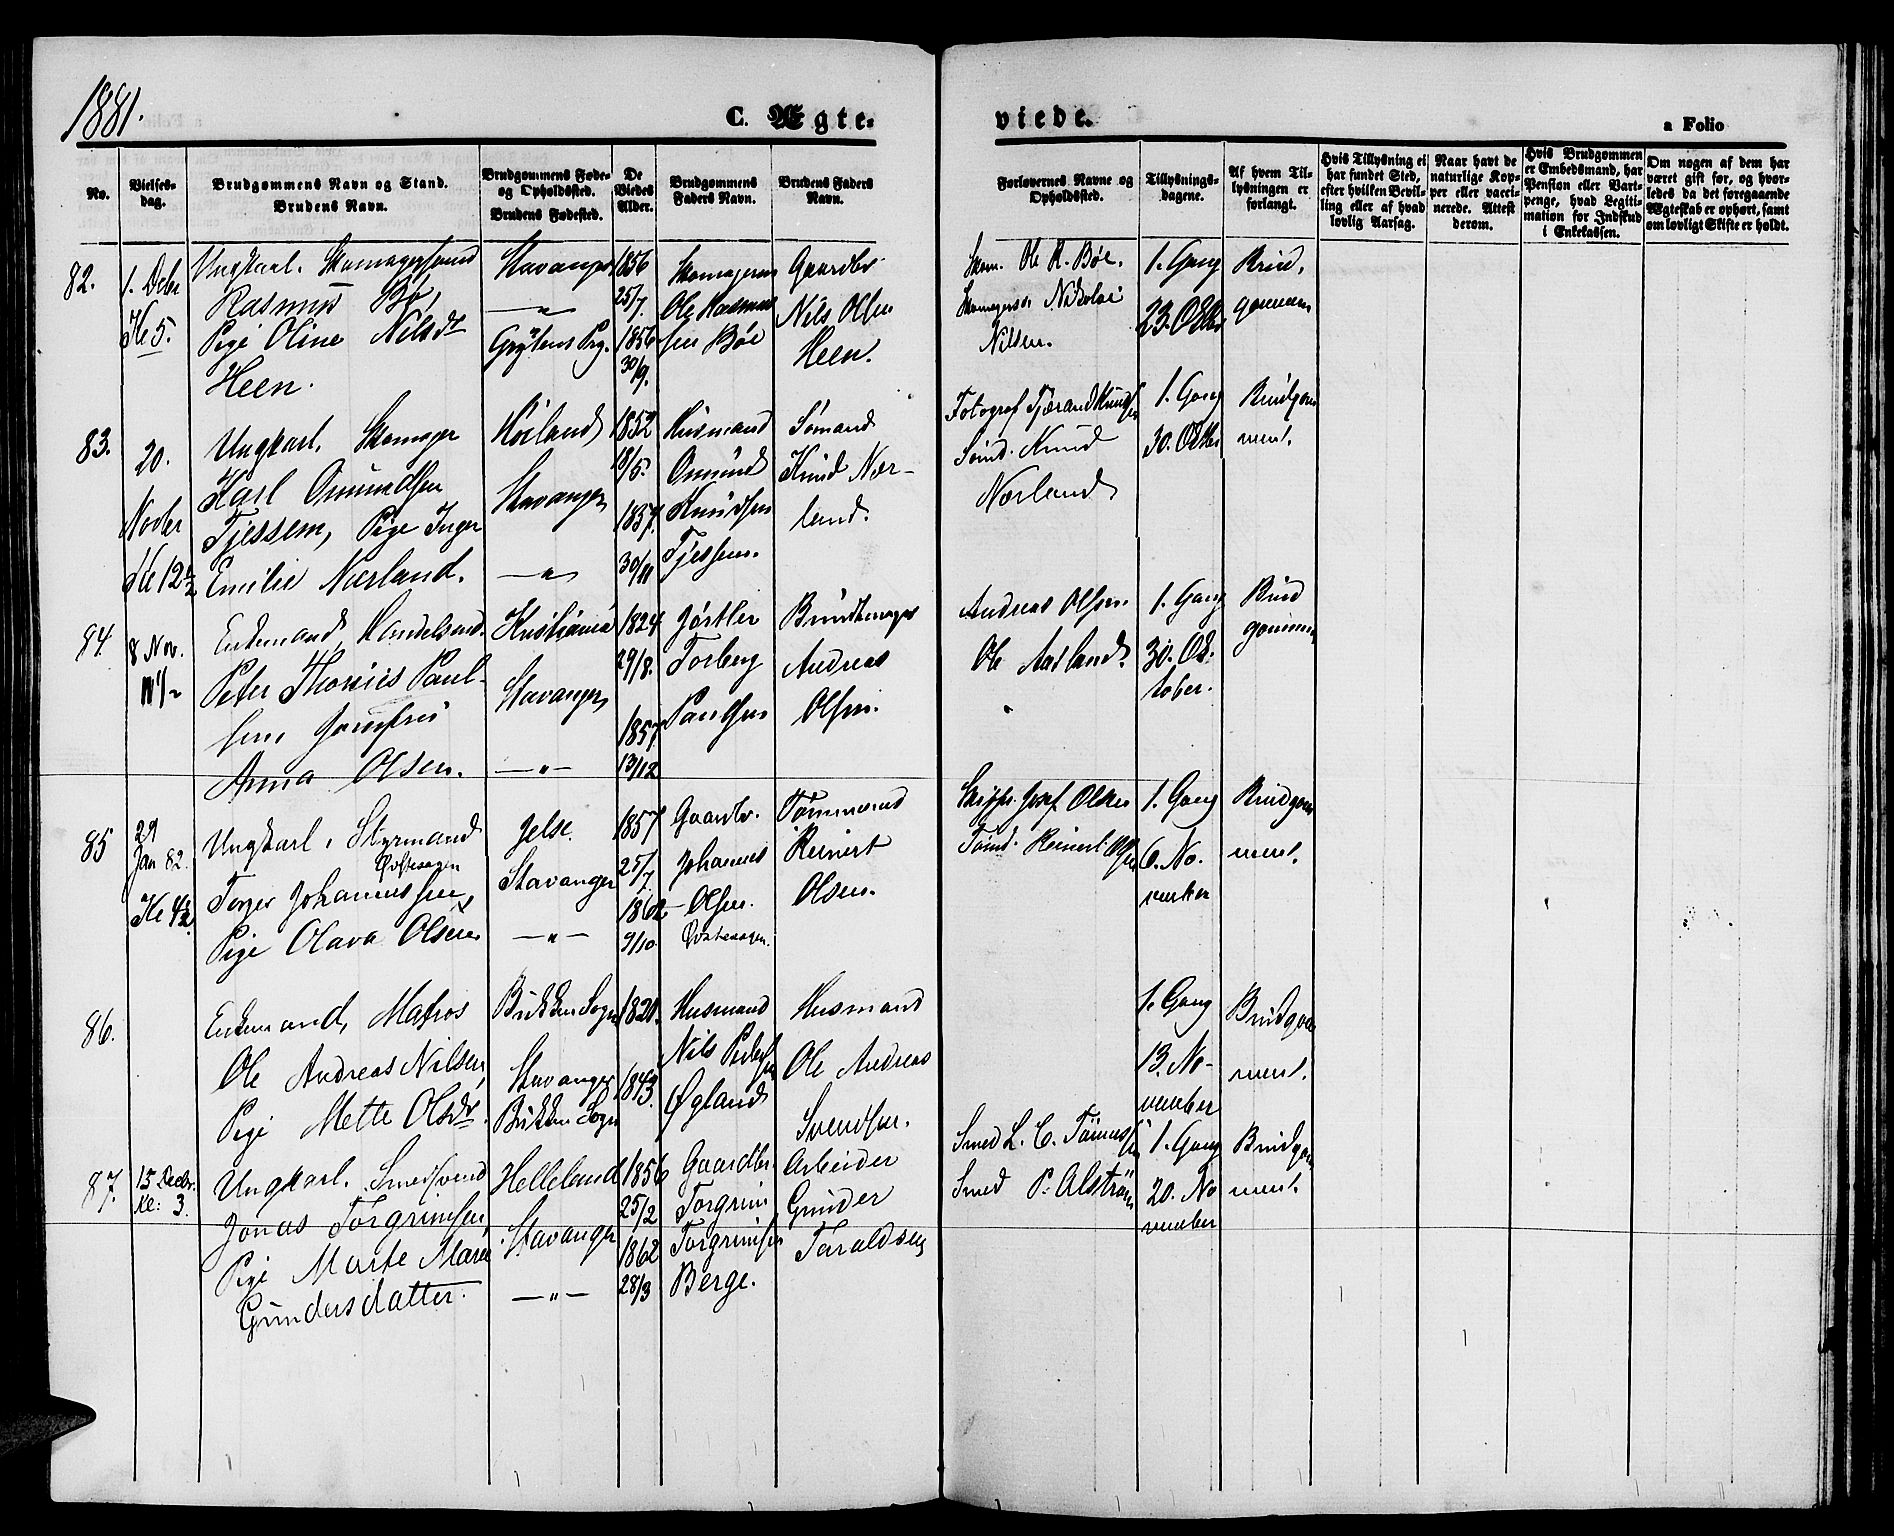 1881.
C. Ægte-
viede.
a Folio
No.
Vielses-
dag.
Brudgommens Navn og Stand.
Brudens Navn.
Brudgommens Føde-
og Opholdssted.
Brudens Fødested.
De
Viedes
Alder.
Brudgommens
Faders Navn.
Brudens Faders
Navn.
Forlovernes Navne og
Opholdssted.
Tillysnings-
dagene.
Af hvem Til-
lysningen er
forlangt.
Hvis Tillysning ei
har fundet Sted,
efter hvilken Bevil-
ling eller af hvad
lovlig Aarsag.
Naar havt de
naturlige Kop-
per eller vacci-
nerede. Attest
derom.
Hvis Brudgommen
er Embedsmand, har
Pension eller Vart-
penge, hvad Legiti-
mation for Indskud
i Enkekassen.
Om nogen af dem har
været gift før, og hvor-
ledes da det foregaaende
Ægteskab er ophørt, samt
om lovligt Skifte er holdt.
82.
1. Deber
Kl 5.
Ungkarl. Skomagersvend
Rasmus Bø,
Pige Oline Nilsdr
Heen.
Stavanger
— „ —
Grytens Prg.
1856
25/7.
1856
30/9.
Skomagerm
Ole Rasmus
sen Bøe
Gaardbr
Nils Olsen
Heen.
Skom. Ole R. Bøe.
Skomagersv Nikolai
Nilsen.
1. Gang
23. Oktbr
Brud.
gommen
83.
20.
Novbr
Kl 12½
Ungkarl. Skomager
Karl Omundsen
Tjessem, Pige Inger
Emilie Nærland.
Høiland
Stavanger
— „ —
1852
18/5.
1857.
30/11
Husmand
Omund
Knudsen
Tjessem.
Sømand
Knud Nær-
land.
Fotograf Tjærand Knudsen
Sømd. Knud
Nærland
1. Gang
30. Oktbr
Brudgom
men.
84.
8 Nov.
11½
Enkemand, Handelsmd.
Peter Thonies Paul-
sen Jomfru
Anna Olsen.
Kristiania
Stavanger
— „ —
1824
29/8.
1857
13/12
Gjørtler
Torberg
Paulsen
Bundtmager
Andreas
Olsen.
Andreas Olsen.
Ole Aasland.
1. Gang
30. Ok-
tober.
Brud
gommen
85
29
Jan 82.
Kl 4½
Ungkarl, Styrmand
Østhaagen
Torger Johannessen
Pige Olava Olsen
Jelse.
Stavanger
— „ —
1857
25/7.
1862
9/10
Gaardbr.
Johannes
Olsen.
Østhaagen.
Tømmermd
Reinert
Olsen.
Skippr. Josef Olsen
Tømd. Reinert Olsen
1. Gang
6. No.
vember
Brudgom
men.
86.
Enkemand, Matros
Ole Andreas Nilsen
Pige Mette Olsdr.
Bukken Sogn
Stavanger
Bukken Sogn
1821.
1843.
Husmand
Nils Peder
sen
Øgland
Husmand
Ole Andreas
Svendsen.
1. Gang
13. No-
vember
Brudgom
men.
87.
15 Decbr.
Kl: 3.
Ungkarl. Smedsvend
Jonas Torgrimsen
Pige Marte Marie
Gundersdatter.
Helleland
Stavanger
— „ —
1856
25/2
1862
28/3
Gaardbr.
Torgrim
Torgrimsen
Berge.
Arbeider
Gunder
Taraldsen
Smed L. C. Tønnessen
Smed P. Alström
1. Gang
20. No
vember
Brudgom
men.